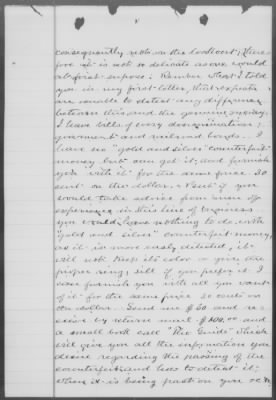 consequently not on the lookout; there
fore it is not so delicate as one would
at first supose; Rember what I told
you in my first letter, that experts
are unable to detect any difference
between this and the genuine money.
I have bills of every denomination;
government and railroad bonds. I
have no "gold and silver" counterfeit
money but can get it, and furnish
you with it for the same price. 20
cent on the dollar, & But if you
would take advice from some of
experience in this line of business
you would have nothing to do with
"gold and silver" counterfeit money,
as it is more easly detected, it
will not keep its color or give the
proper ring; still if you prefer it I
can furnish you with all you want
of it for the same price 20 cents on
the dollar. Send me $ and re
ceive by return mail $ and
a small book call "The Guide" which
will give you all the information you
desire regarding the passing of the
counterfeit and how to detect it;
when it is being past on you